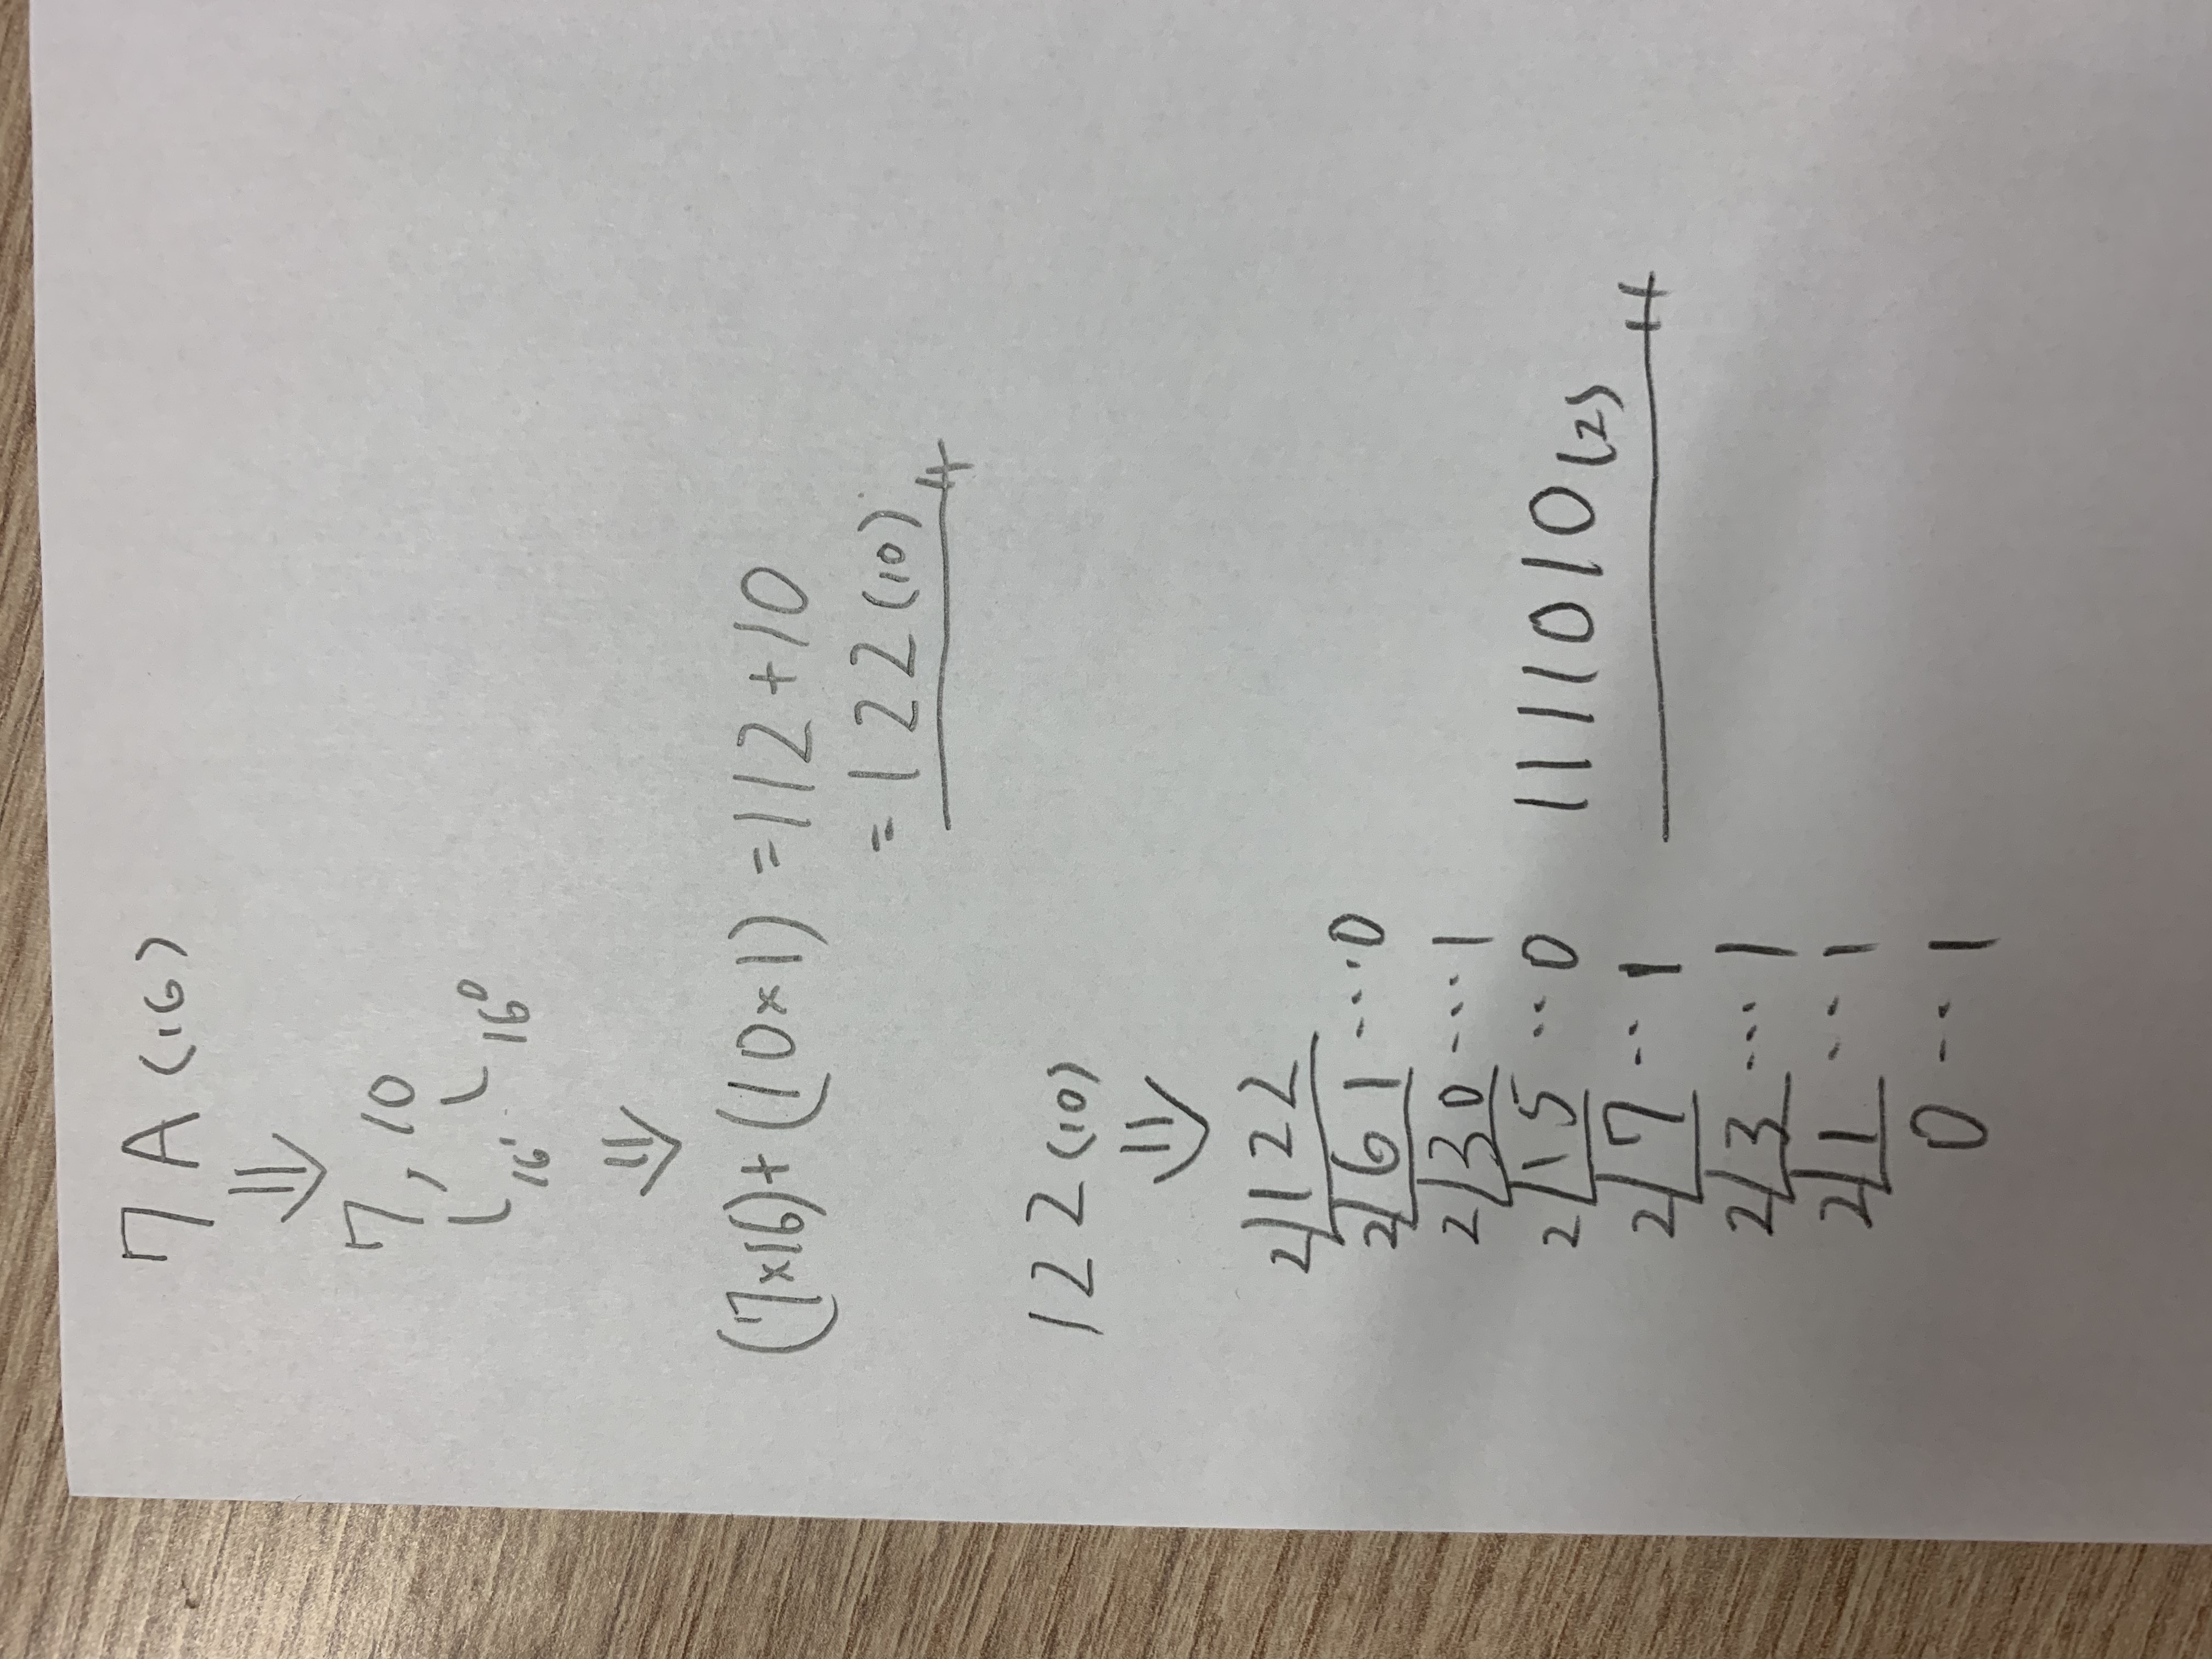 7A(16)
⇓
7, 10
16¹ 16⁰
⇓
(7×16)+(10×1) =112+10
=122(10)
122(10)
⇓
2)122
2)61 ...0
2)30 ...1
2)15 ...0
2)7 ...1
2)3 ...1
2)1 ...1
0 ...1
1111010(2)